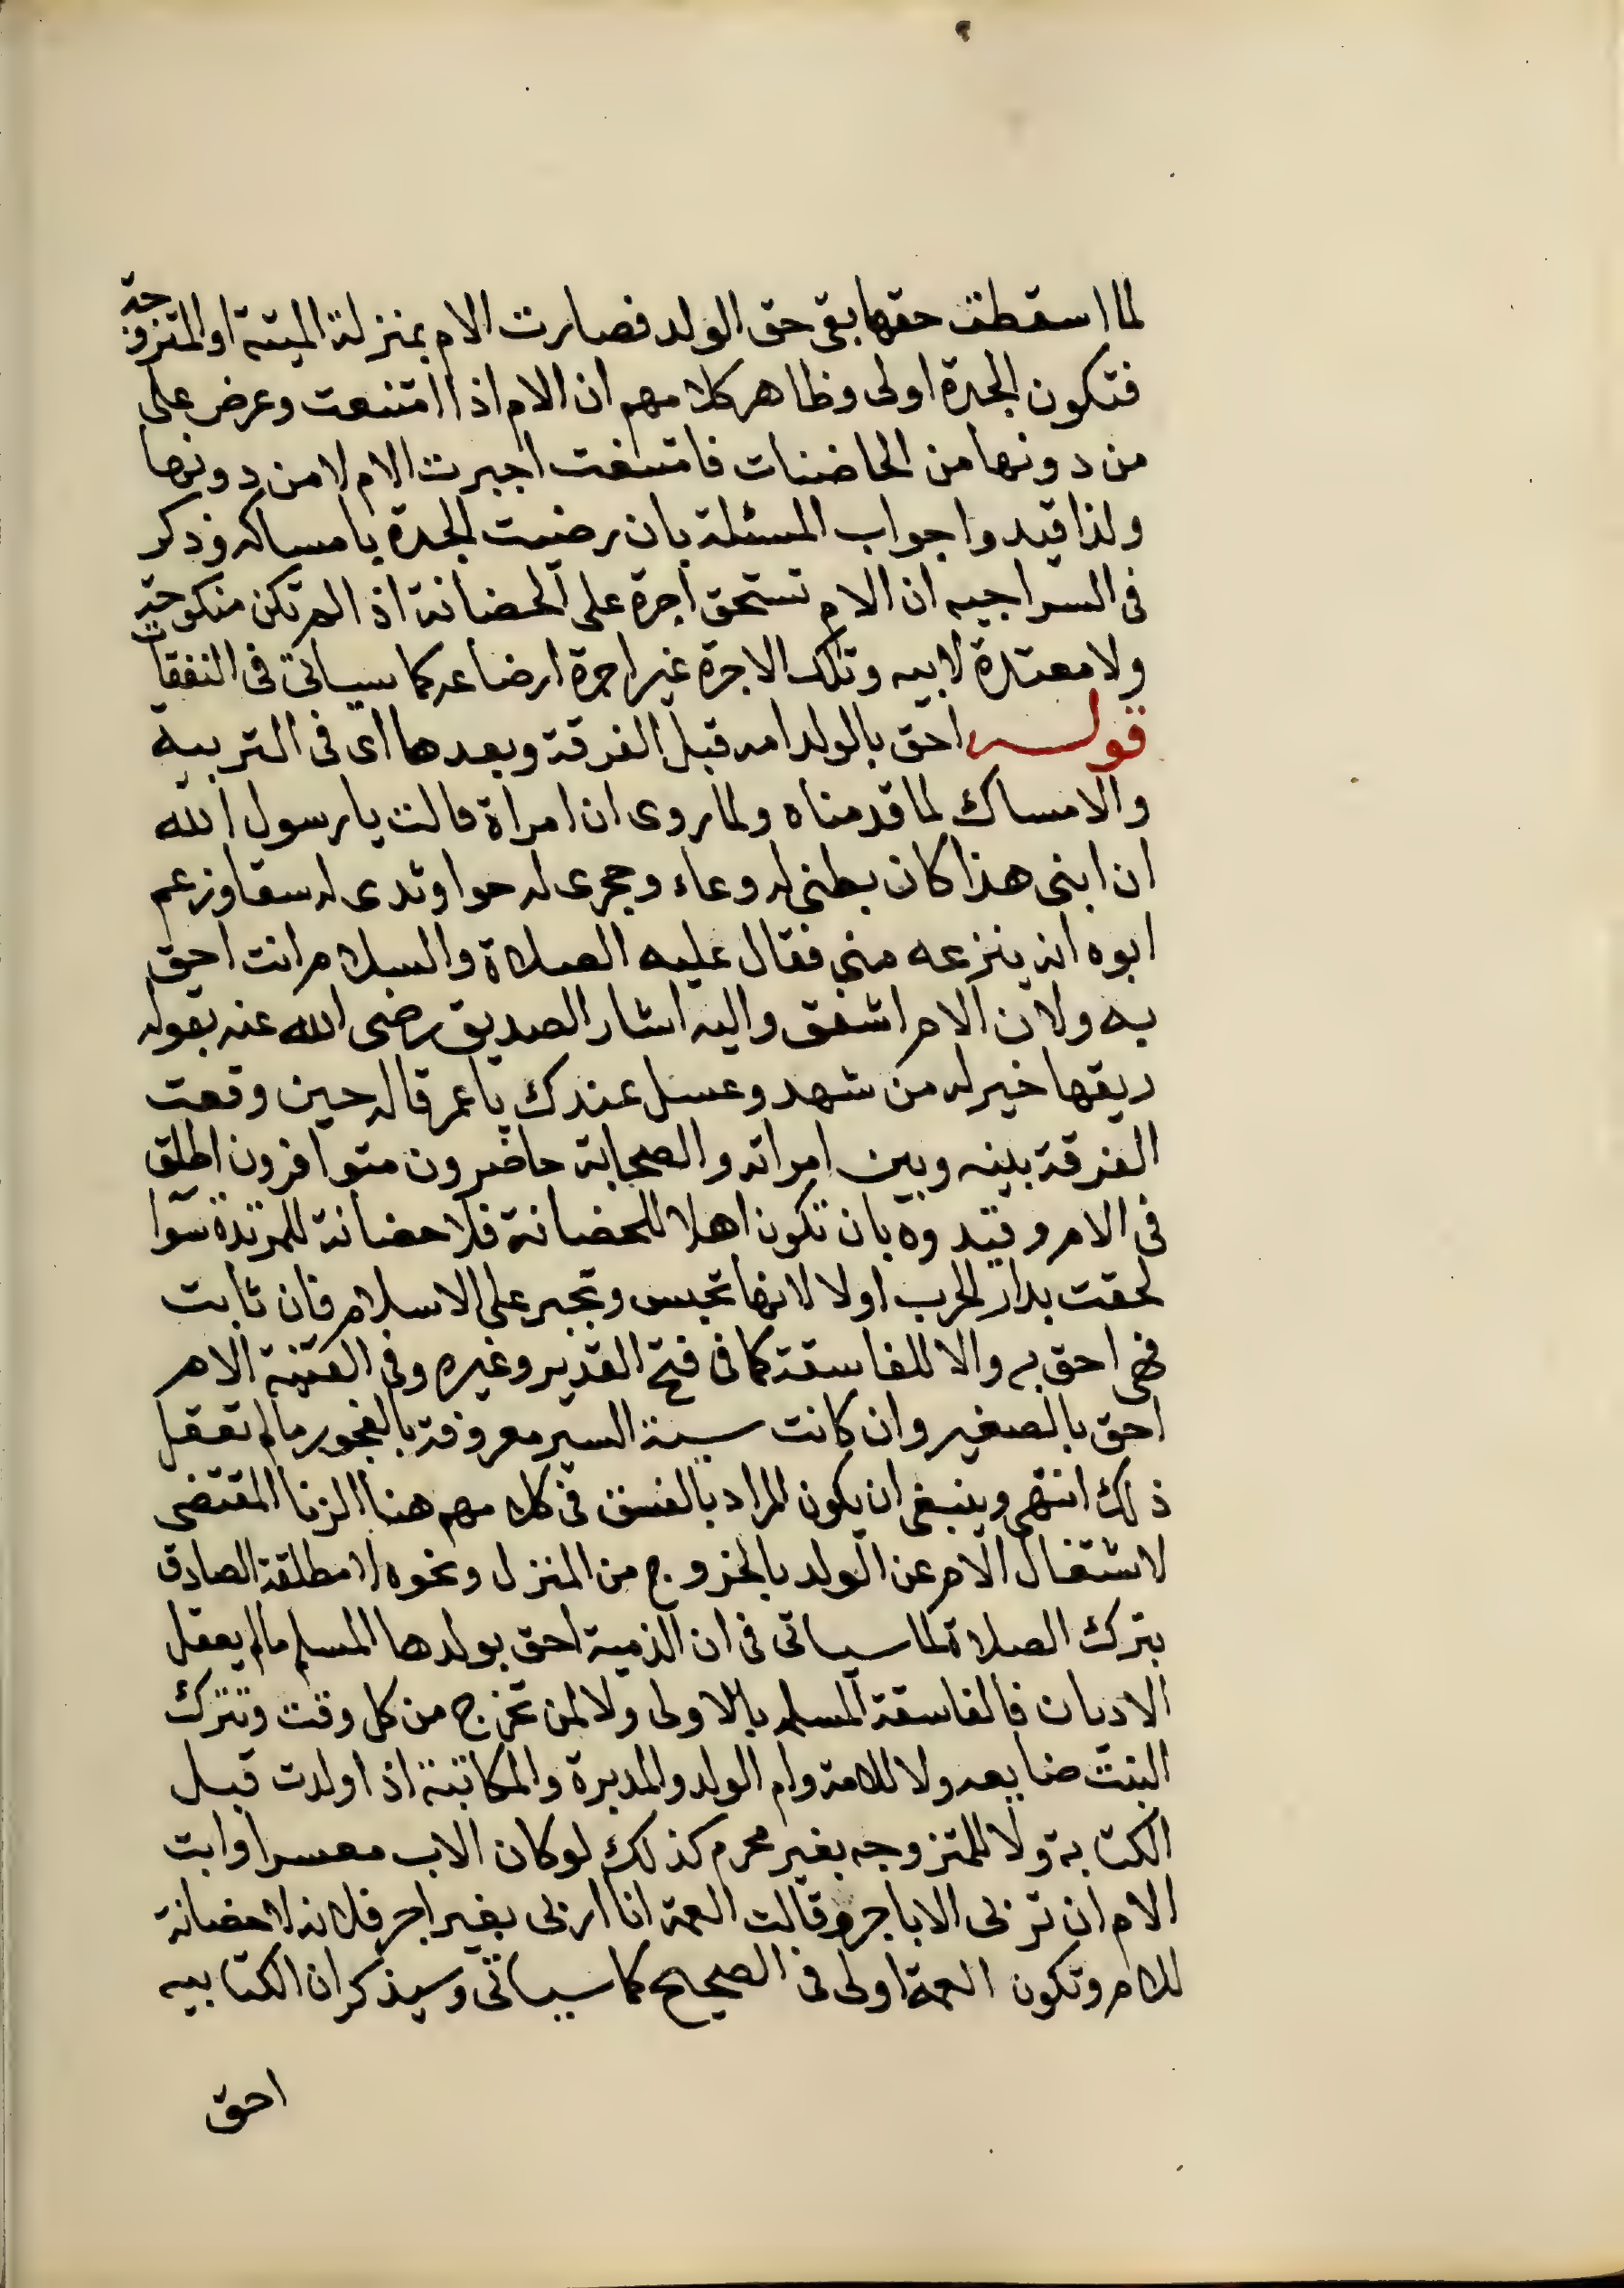 لما اسقطت حقها بقى حق الولد فصارت الام بمنزلة الميتة او المتزوجة
فتكون الجدة اولى وظاهر كلامهم ان الام اذا امتنعت وعرض على
من دونها من الحاضنات فامتنعت اجبرت الام لا من دونها
ولذا قيدوا جواب المسئلة بان رضيت الجدة بامساكه وذكر
فى السراجيه ان الام تستحق اجرة على الحضانة اذا لم تكن منكوحة
ولا معتدة لابيه وتلك الاجرة غير اجرة ارضاعه كما سياتى فى النفقات
قوله احق بالولد امه قبل الفرقة وبعدها اى فى التربيه
والامساك لما قدمناه ولما روى ان امراة قالت يا رسول الله
ان ابنى هذا كان بطنى له وعاء وحجرى له حوا وثدى له سقا وزعم
ابوه انه ينزعه منى فقال عليه الصلاة والسلام انت احق
به ولان الام اشفق واليه اشار الصديق رضى الله عنه بقوله
ريقها خير له من شهد وعسل عندك يا عمر قاله حين وقعت
الفرقة بينه وبين امراته والصحابة حاضرون متوافرون اطلق
فى الام وقيدوه بان تكون اهلا للحضانة فلا حضانة للمرتدة سوا
لحقت بدار الحرب اولا لانها تحبس وتجبر على الاسلام فان تابت
فهى احق به والا للفاسقة كما فى فتح القدير وغيره وفى القنية الام
احق بالصغير وان كانت سيئة السير معروفة بالفجور مالم تعقل
ذلك انتهى وينبغى ان يكون المراد بالفسق فى كلامهم هنا الزنا المقتضى
لاشتغال الام عن الولد بالخروج من المنزل ونحوه لا مطلقة الصادق
بترك الصلاة لما سياتى فى ان الذمية احق بولدها المسلم مالم يعقل
الاديان فالفاسقة المسلمه بالاولى ولا لمن تخرج من كل وقت وتترك
البنت ضايعه ولا للامة وام الولد والمدبرة والمكاتبة اذا ولدت قبل
الكتابة ولا للمتزوجه بغير محرم كذلك لو كان الاب معسرا وابت
الام ان تربى الا باجرة وقالت العمة انا اربى بغير اجر فلانه لا حضانة
للام وتكون العمة اولى فى الصحيح كما سياتى وسيذكر ان الكتابيه
احق